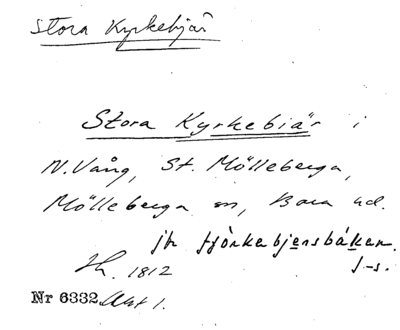 Stora Kyrkebjär
Stora Kyrkebiä'r i
N. Vång, St. Mölleberga,
Mölleberga sn, Bara hd.
jfr fjörkebjersbáken.
f-s.
Sk. 1812
Nr 6332 Akt 1.